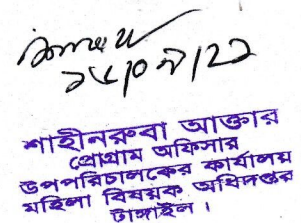 ১৫/০৭/২১
শাহীনরুবা আক্তার
প্রোগ্রাম অফিসার
উপপরিচালকের কার্যালয়
মহিলা বিষয়ক অধিদপ্তর
টাঙ্গাইল।